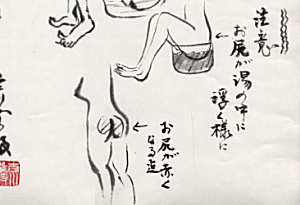 注意
お尻が湯の中に
浮く様に
お尻が赤く
なる迄